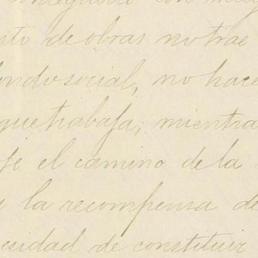 to de obras no trae
fondo social, no hace
que trabaja, mientra
el camino de la
la recompensa de
cesidad de constituir